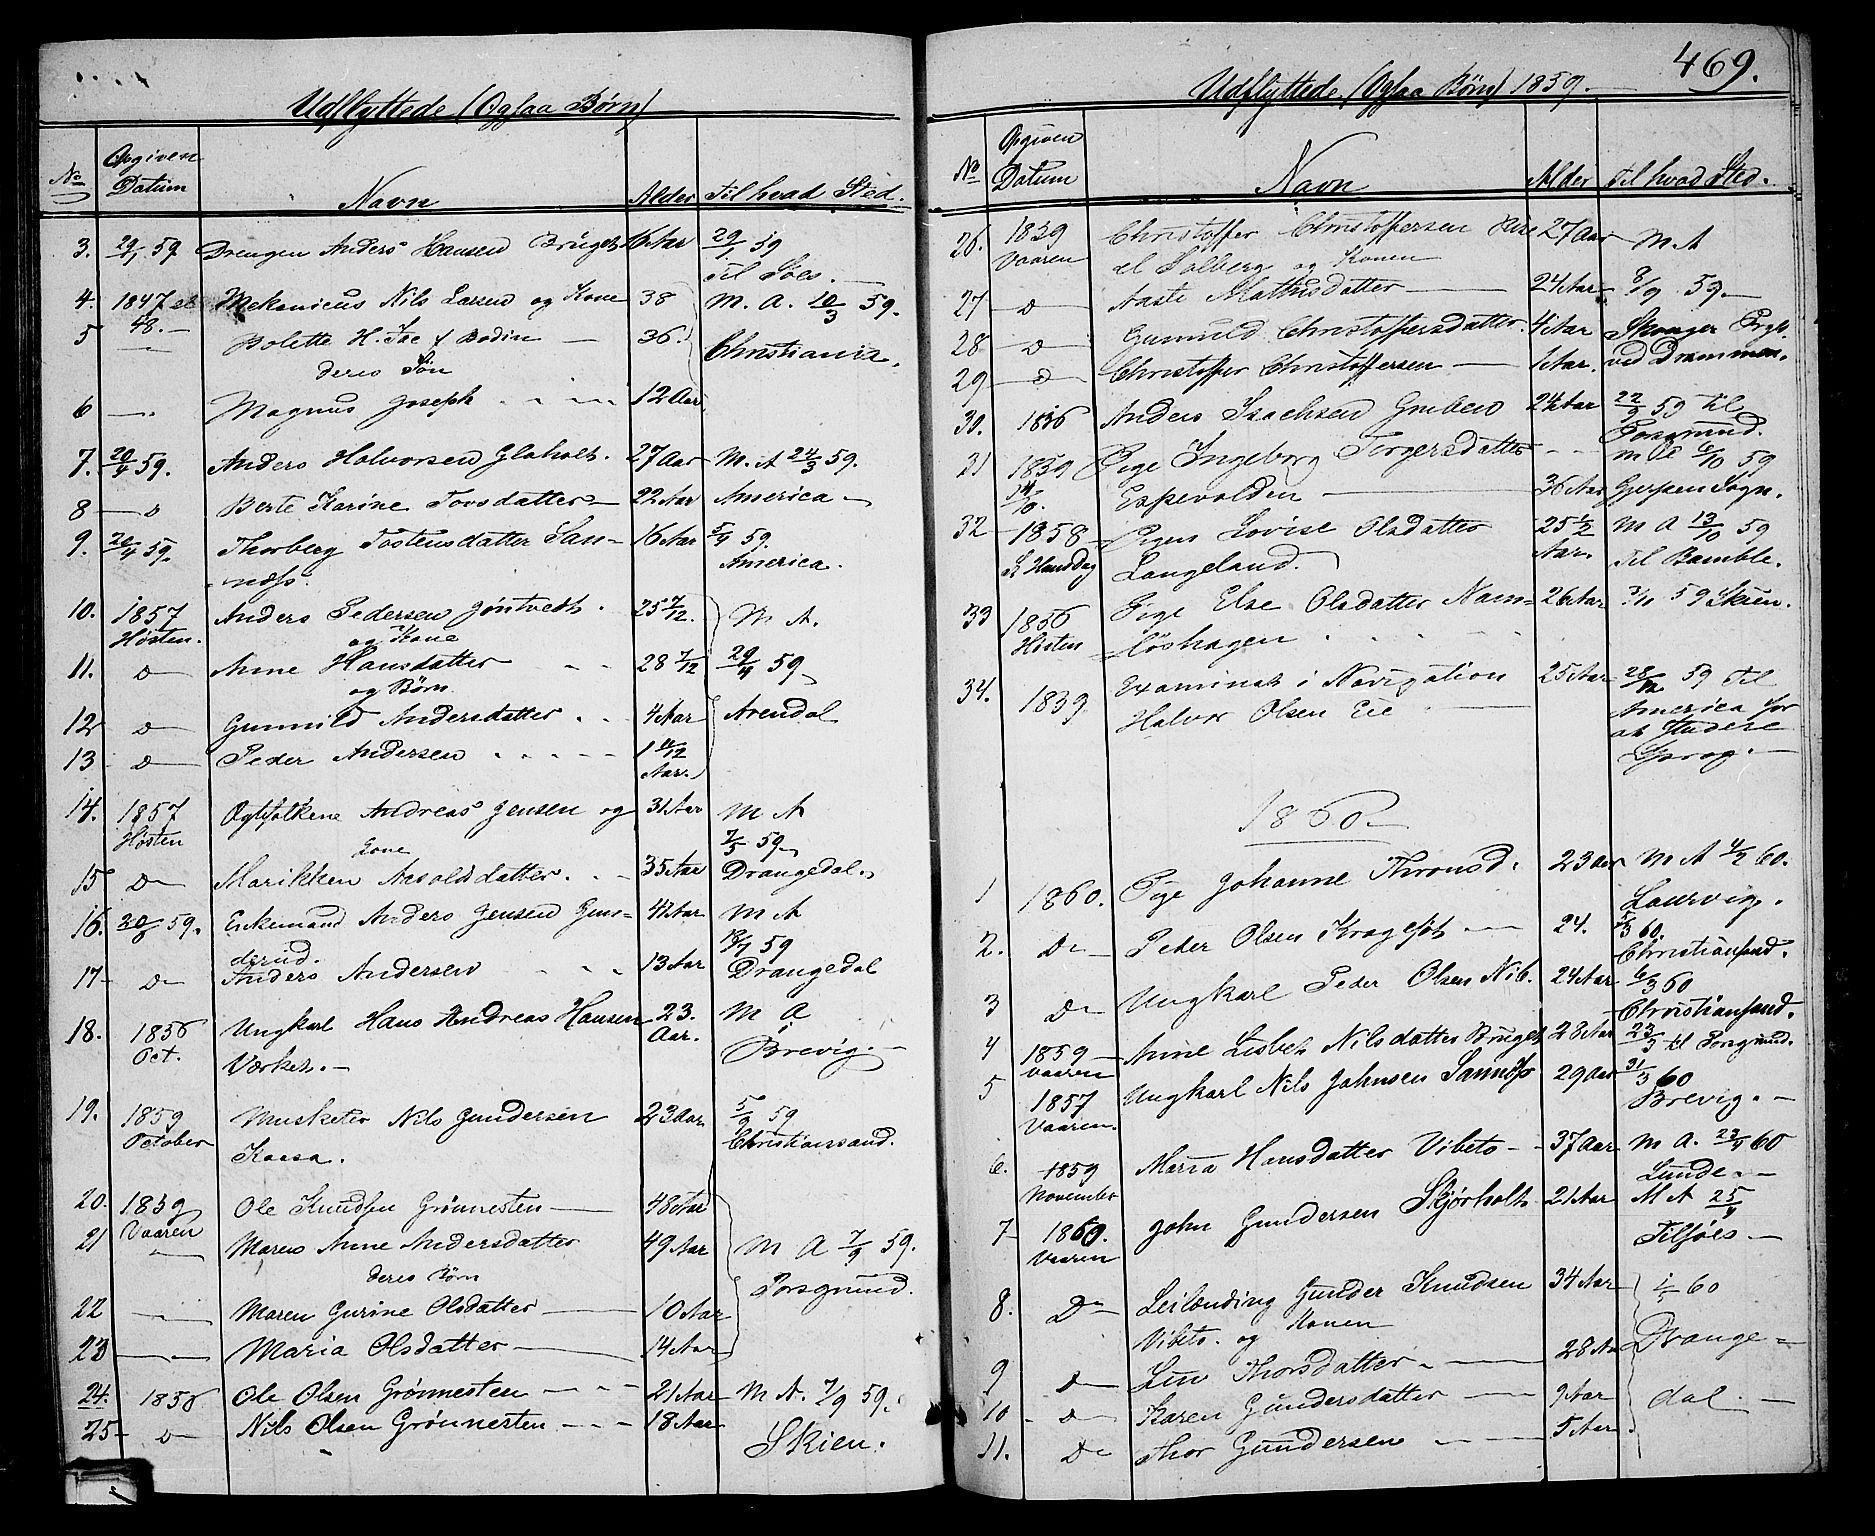 Udflyttede (Ogsaa Børn)
No Opgiven Datum Navn Alder Til hvad Sted.
3. 29/1 59. Drengen Anders Hansen Bruget 16 Aar 29/1 59
Til Søes.
4. 1847 el Mekanicus Nils Larsen og Kone 38 M. A. 10/3 59.
48.
5 — Bolette H. f Bodin — 36. Christiania.
deres Søn
6 — Magnus Joseph 12 Aar
7. 20/4 59. Anders Halvorsen Glaholt. 27 Aar M. A 24/3 59.
8 — D Berte Karine Tovsdatter — 22 Aar America —
9. 20/4 59. Thorberg Tostensdatter San- 16 Aar 5/4 59.
næss. America.
10. 1857 Anders Pedersen Jøntvedt. 25 7/12. M A.
Høsten. og Kone
11. D Anne Hansdatter 28 7/12 29/4 59
og Børn
12 D Gunnild Andersdatter 4 Aar Arendal
13 D Peder Andersen 1 11/12
Aar.
14. 1857 Ægtfolkene Andreas Jensen og 31 Aar M A
Høsten Kone 7/5 59
15 D Marikken Aasoldsdatter. 35 Aar Drangedal.
16. 59. Enkemand Anders Jensen Gun- 41 Aar M A
derud. 59
17 D Anders Andersen 13 Aar Drangedal
18. 1856 Ungkarl Hans Andreas Hansen 23. M A
Oct. Værket. Aar. Brevig.
19. 1859 Musketer Nils Gundersen 23 Aar. 5/9 59
October Kaasa. Christianssand.
20. 1859 Ole Knudsen Grønnesten — 48 Aar
Vaaren
21 — Maren Anne Andersdatter 49 Aar M A 7/9 59.
deres Børn Porsgrund.
22 — Maren Gurine Olsdatter — 10 Aar
23 — Maria Olsdatter — 14 Aar
24. 1858 Ole Olsen Grønnesten — 21 Aar M A. 7/9 59.
25 D Nils Olsen Grønnesten — 18 Aar Skien.
469.
Udflyttede (Ogsaa Børn) 1859.
No Opgiven Datum Navn Alder Til hvad Sted.
26. 1859 Christoffer Christoffersen 27 Aar M. A
Vaaren el Solberg og Konen
27 D Aaste Mathisdatter — 24 Aar 8/9 59.
28 D Gunnild Christoffersdatter. 4 Aar Skouger Prgld.
29 D Christoffer Christoffersen — 1 Aar. ved Drammen.
30. 1856 Anders Isachsen Gruben 24 Aar 22/9 59 til
Porsgrund.
31 1859 Pige Ingeborg Torgersdatter M A 6/10 59
14/10. Espevolden — 36 Aar Gjerpen Sogn.
32 1858 Pigen Lovise Olsdatter 25 1/2 M A 13/10 59
St Hansdag Langeland. Aar. Til Bamble.
33 1856 Pige Else Olsdatter Nam- 26 Aar 59 Skien.
Høsten løshagen
34. 1859 Examinat i Navigation 25 Aar 28/12 59 til
Halvor Olsen Eie America for
at studere
Sprog.
1860
1 1860. Pige Johanne Thronsd. 23 aar M A 4/2 60.
Laurvig.
2. Do Peder Olsen Kragesøt — 24. 5/3 60.
Christiansand.
3 Do Ungkarl Peder Olsen Nib. 24 Aar 6/3 60
Christiansand.
4 1859 Anne Lisbet Nilsdatter Bruget 28 Aar 23/3 til Porsgrund.
Vaaren
5 1857 Ungkarl Nils Johnsen Sannæss 29 Aar 31/3 60
Vaaren. Brevig. —
6. 1859 Maria Hansdatter Vibeto — 37 Aar M. A. 23/4 60
November Lunde. —
7 1860. John Gundersen Skjørholt 21 Aar M A 25/4
Vaaren Tilsøes —
8. Do Leilending Gunder Knudsen 34 Aar 1/5 60
Vibeto. og Konen
9 D Liv Thorsdatter. — 28 Aar Drange-
10 D Karen Gundersdatter — 9 Aar dal. —
11. Do Thor Gundersen — 5 Aar.